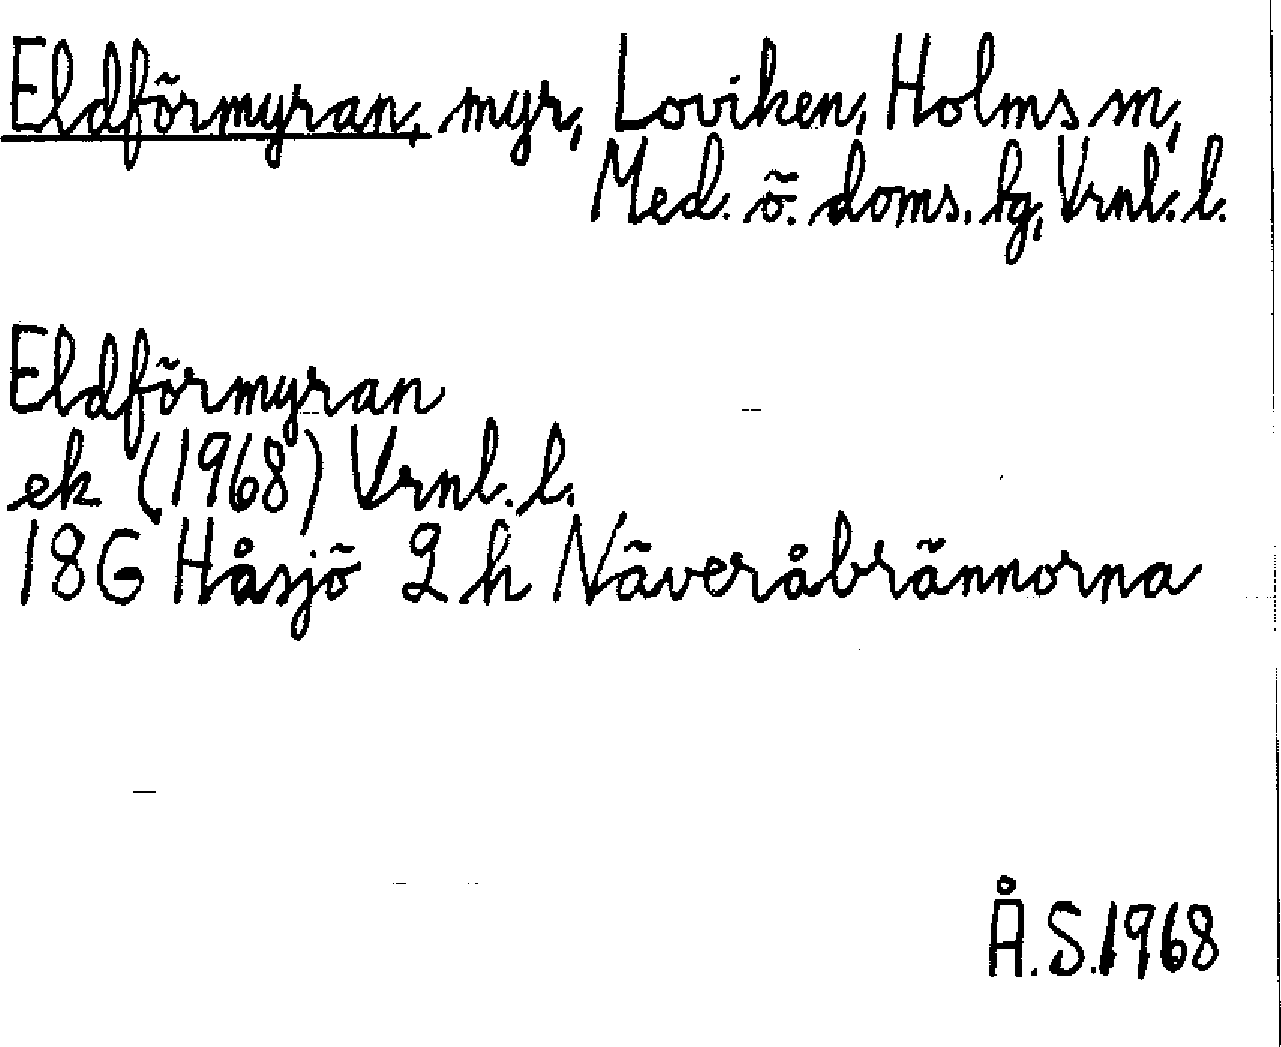 Eldförmyran, myr, Loviken, Holms sn,
Med. ö. doms. lg, Vrnl. l.
Eldförmyran
ek (1968) Vrnl. l.
18G Håsjö 2 h Näveråbrännorna
Å.S.1968